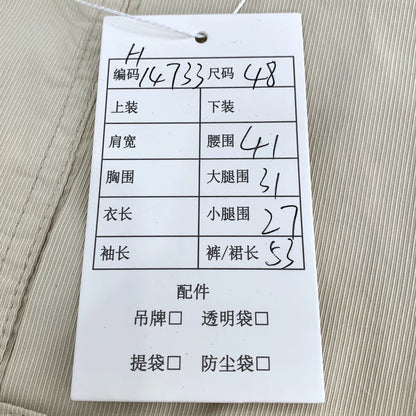 H
编码 14733 尺码 48
上装 下装
肩宽 腰围 41
胸围 大腿围 31
衣长 小腿围 27
袖长 裤/裙长 53
配件
吊牌□ 透明袋□
提袋□ 防尘袋□